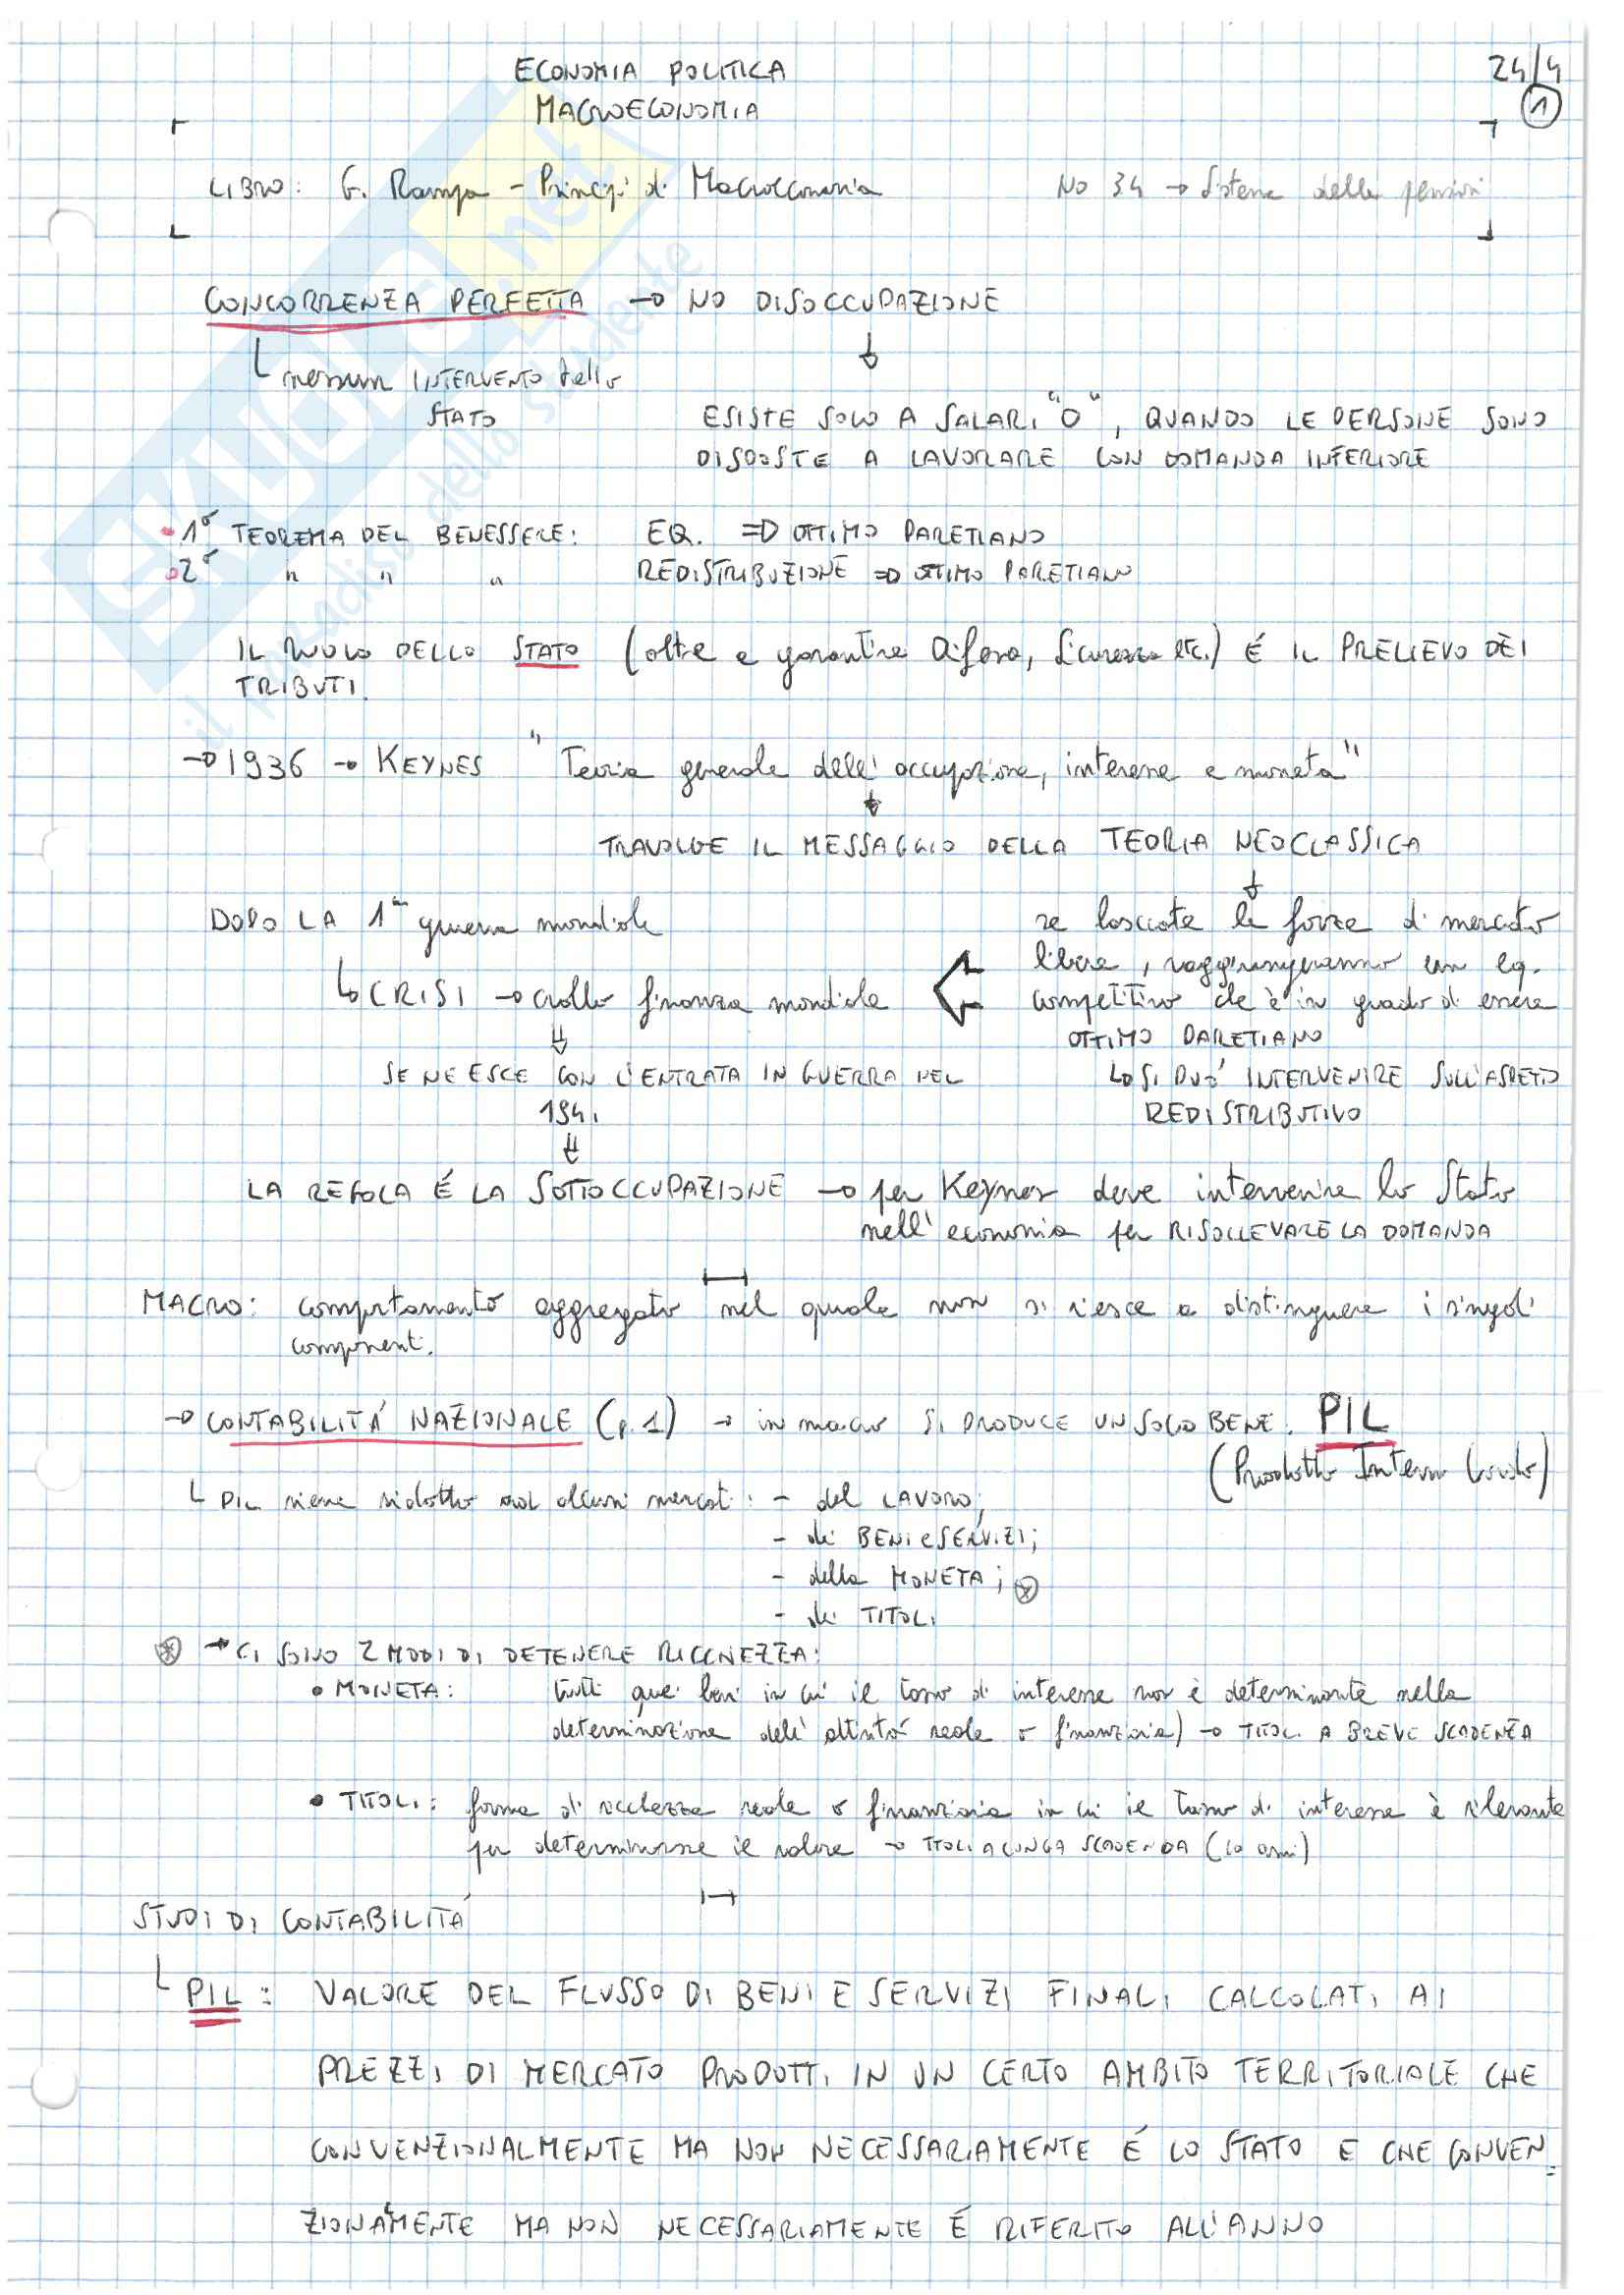 ECONOMIA POLITICA
24/4
MACROECONOMIA
1
LIBRO: G. Rampa - Principi di Macroeconomia
NO 34 → Sistema delle pensioni
CONCORRENZA PERFETTA → NO DISOCCUPAZIONE
nessun INTERVENTO dello
STATO
ESISTE SOLO A SALARI "0", QUANDO LE PERSONE SONO
DISPOSTE A LAVORARE CON DOMANDA INFERIORE
• 1° TEOREMA DEL BENESSERE: EQ. => OTTIMO PARETIANO
• 2° " " " REDISTRIBUZIONE => OTTIMO PARETIANO
IL RUOLO DELLO STATO (oltre a garantire Difesa, Sicurezza etc.) É IL PRELIEVO DEI
TRIBUTI.
→ 1936 → KEYNES "Teoria generale dell'occupazione, interesse e moneta"
↓
TRAVOLGE IL MESSAGGIO DELLA TEORIA NEOCLASSICA
↓
DOPO LA 1ª guerra mondiale
↳ CRISI → crollo finanza mondiale
⇓
SE NE ESCE CON L'ENTRATA IN GUERRA NEL
194.
⇓
se lasciate le forze di mercato
libere, raggiungeranno un eq.
competitivo che è in grado di essere
OTTIMO PARETIANO
↳ SI PUÓ INTERVENIRE SULL'ASPETTO
REDISTRIBUTIVO
LA REGOLA É LA SOTTOCCUPAZIONE → per Keynes deve intervenire lo Stato
nell'economia per RISOLLEVARE LA DOMANDA
MACRO: comportamento aggregato nel quale non si riesce a distinguere i singoli
componenti.
→ CONTABILITÁ NAZIONALE (p.1) → in macro SI PRODUCE UN SOLO BENE: PIL
(Prodotto Interno Lordo)
PIL viene ridotto ad alcuni mercati: - del LAVORO;
- dei BENI e SERVIZI;
- della MONETA; ⊛
- dei TITOLI
⊛ → CI SONO 2 MODI DI DETENERE RICCHEZZA:
• MONETA: tutti quei beni in cui il tasso di interesse non è determinante nella
determinazione dell'attività reale o finanziaria) → TITOLI A BREVE SCADENZA
• TITOLI: forma di ricchezza reale o finanziaria in cui il tasso di interesse è rilevante
per determinarne il valore → TITOLI A LUNGA SCADENZA (10 anni)
STUDI DI CONTABILITÁ
PIL: VALORE DEL FLUSSO DI BENI E SERVIZI FINALI CALCOLATI AI
PREZZI DI MERCATO PRODOTTI IN UN CERTO AMBITO TERRITORIALE CHE
CONVENZIONALMENTE MA NON NECESSARIAMENTE É LO STATO E CHE CONVEN-
ZIONALMENTE MA NON NECESSARIAMENTE É RIFERITO ALL'ANNO
SKUOLA.net
il paradiso dello studente